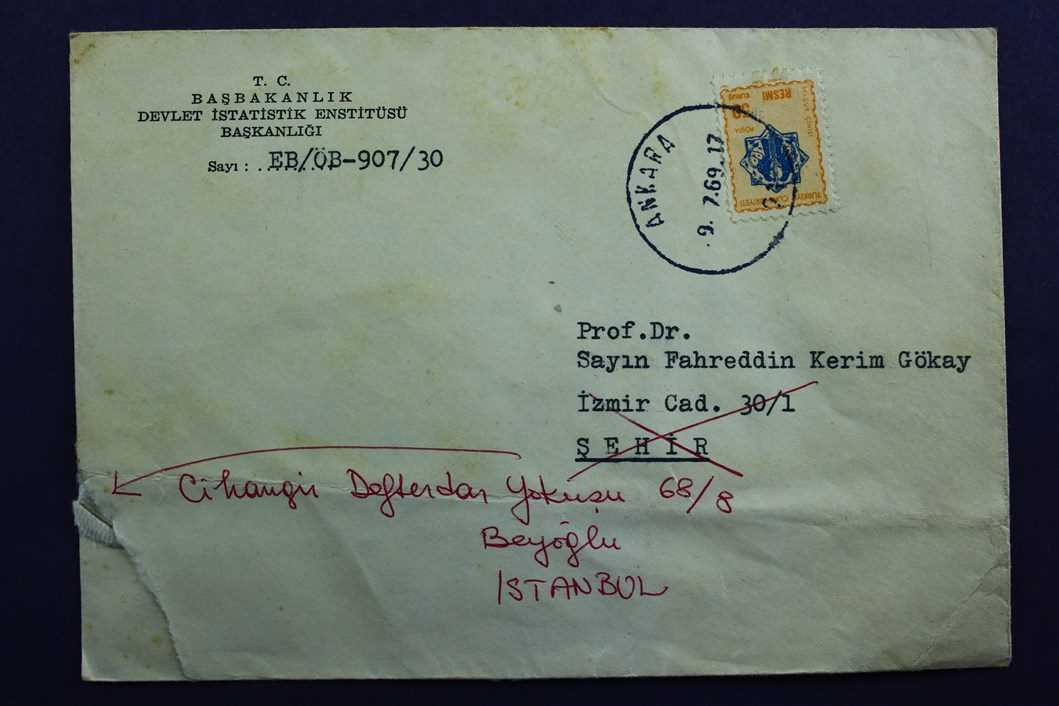 T. C.
BAŞBAKANLIK
DEVLET İSTATİSTİK ENSTİTÜSÜ
BAŞKANLIĞI
Sayı : EB/ÖB-907/30
ANKARA
9. 7.69.17
RESMİ
50
KURUŞ
POSTA
TÜRKİYE CUMHURİYETİ
Prof.Dr.
Sayın Fahreddin Kerim Gökay
İzmir Cad. 30/1
ŞEHİR
Cihangir Defterdar Yokuşu 68/8
Beyoğlu
İSTANBUL